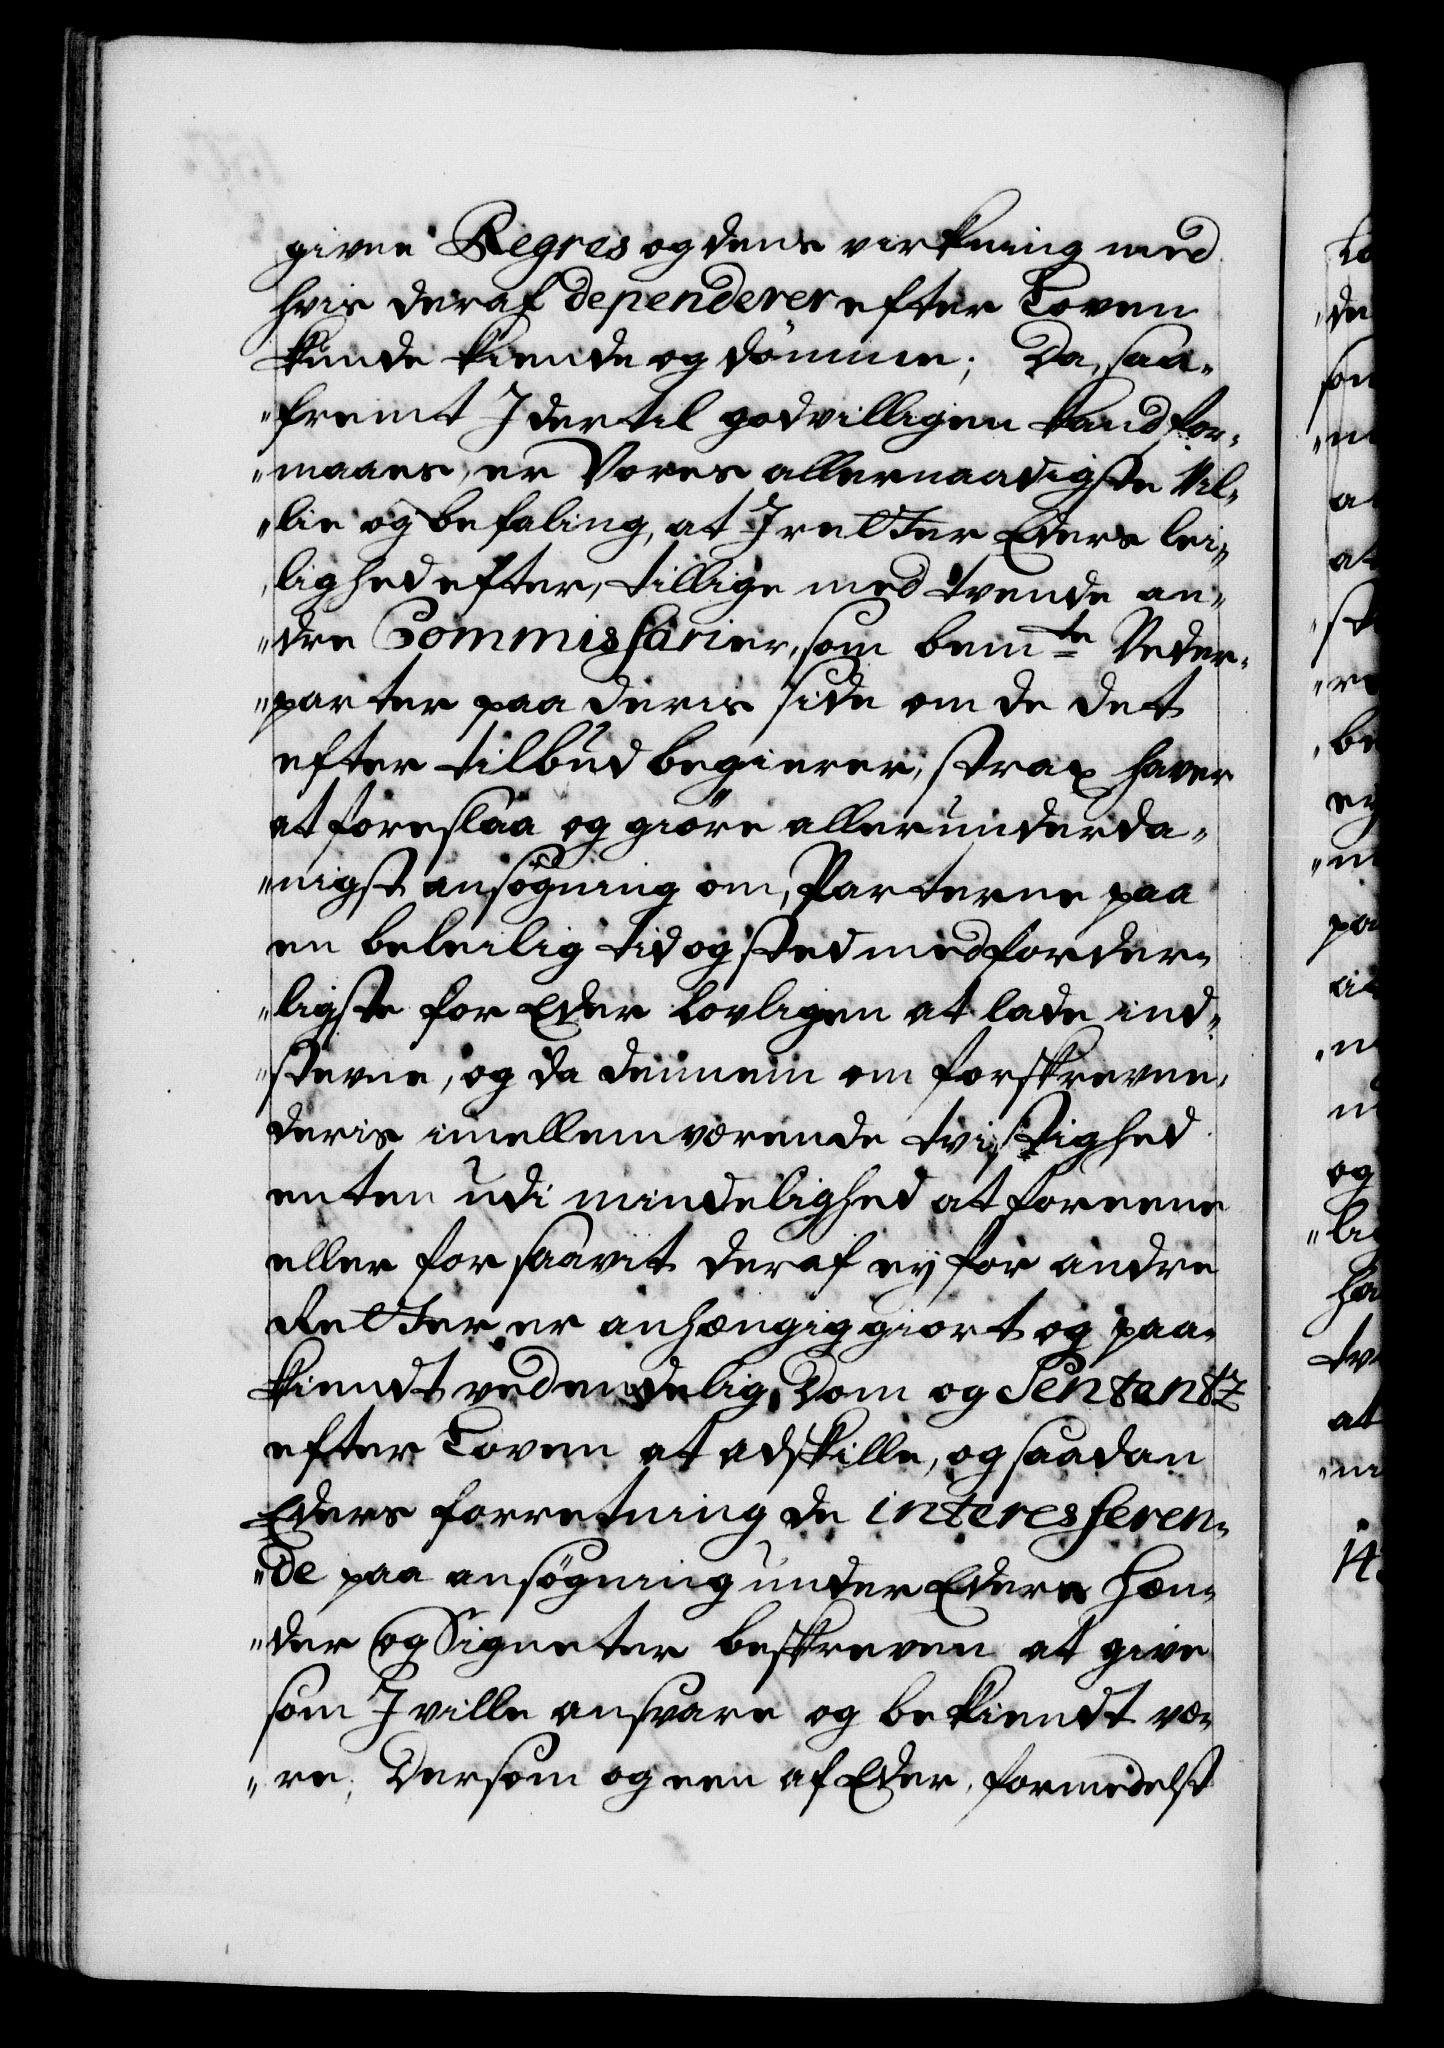 givne Regres og dens virkning med
hvis deraf dependerer efter Loven
kunde kiende og dömme; Da, saa-
"fremt I dertil godvilligen kand for-
"maaes, er Vores allernaadigste Vil-
"lie og befaling, at I retter Eders lei-
"lighed efter, tillige med tvende an-
"dre Commissarier, som bemte Veder-
"parter paa deris side om de det
efter tilbud begierer, strax haver
at foreslaa og giöre allerunderda-
"nigst ansögning om, Parterne paa
en beleilig tid og sted med forder-
"ligste for Eder lovligen at lade ind-
"stevne, og da dennem om forskrevne
deris imellemværende tvistighed
enten udi mindelighed at foreene
eller forsaavit deraf ey for andre
Retter er anhængiggiort og paa-
kiendt ved endelig Dom og Sententz
efter Loven at adskille, og saadan
Eders forretning de interesseren-
"de paa ansögning under Eders Hæn-
"der og Signeter beskreven at give
som I ville ansvare og bekiendt væ-
"re; Dersom og een af Eder, formedelst